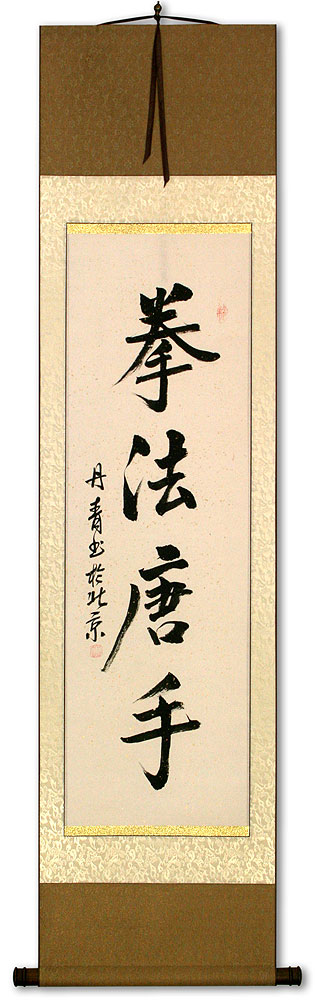 拳法唐手
丹青书於北京